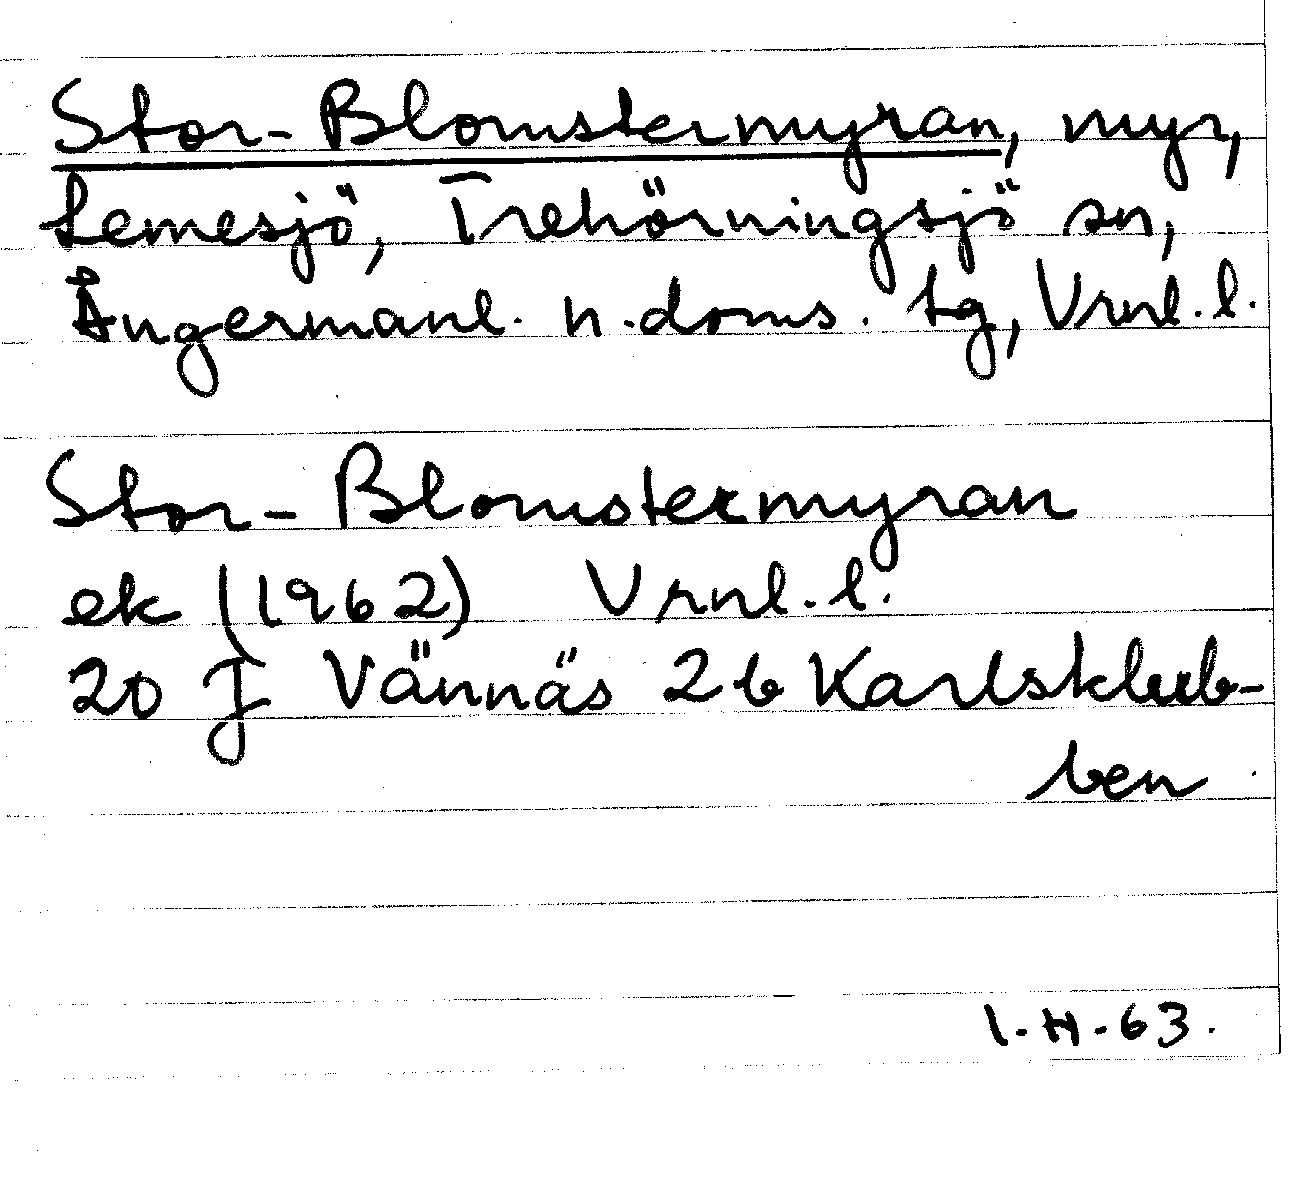 Stor-Blomstermyran, myr,
Lemesjö, Trehörningsjö sn,
Ångermanl. n. doms. tg, Vrnl. l.
Stor-Blomstermyran
ek (1962) Vrnl. l.
20 J Vännäs 2b Karlsklub-
ben
I. H. 63.